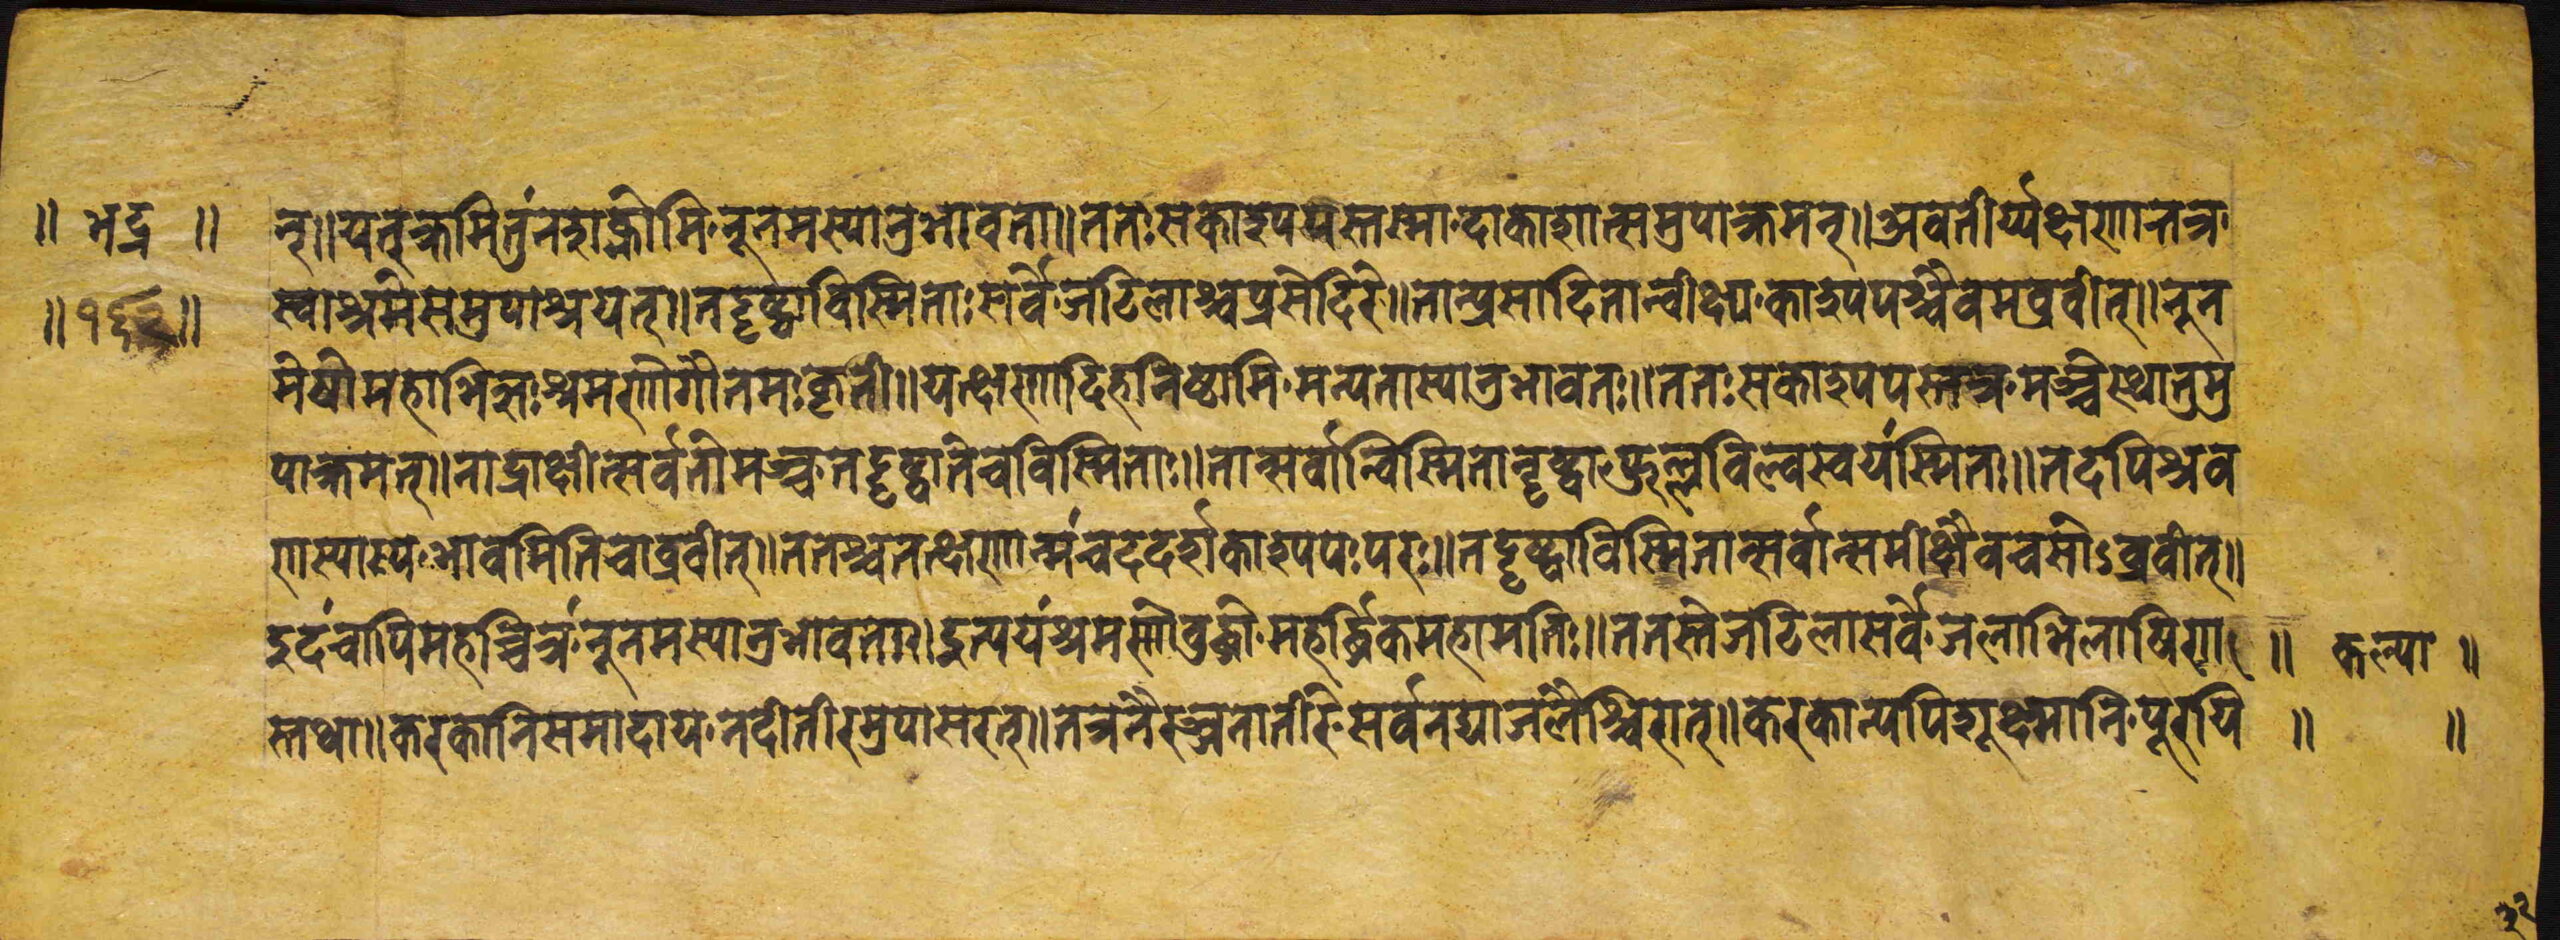 ॥ भद्र ॥ त्॥ यत्क्रमितुं न शक्नोमि नूनमस्यानुभावता॥ ततः स काश्यपस्तस्मादाकाशात्समुपाक्रमत्॥ अवतीर्य्य क्षणात्तत्र
॥ स्वाश्रमे समुपाश्रयत्॥ तद्दृष्ट्वा विस्मिताः सर्वे जटिलाश्च प्रसेदिरे॥ तान्प्रसादितान्वीक्ष्य काश्यपश्चैवमब्रवीत्॥ नून
मेषो महाभिज्ञः श्रमणो गौतमः कृती॥ यत्क्षणादिह तिष्ठामि मन्यतास्यानुभावतः॥ ततः स काश्यपस्तत्र मञ्चे स्थातुमु
पाक्रमत्॥ नाद्राक्षीत्सर्वतो मञ्च तद्दृष्ट्वा ते च विस्मिताः॥ तान्सर्वान्विस्मितान्दृष्ट्वा फुल्लविल्वस्वयं स्मितः॥ तदपि श्रव
णस्यास्य भावमिति चाब्रवीत्॥ ततश्च तत्क्षणान्मंच ददर्श काश्यपः परः॥ तद्दृष्ट्वा विस्मितान्सर्वान्समीक्ष्यैवं च सोऽब्रवीत्॥
इदं चापि महच्चित्रं नूनमस्यानुभावतः॥ इत्ययं श्रमणो बुद्धो महर्द्धिक महामतिः॥ ततस्ते जटिला सर्वे जलाभिलाषिण ॥ कल्या ॥
स्तथा॥ करकानि समादाय नदीतीरमुपासरत्॥ तत्र नैरञ्जनातीरे सर्वनद्या जलैश्चिरात्॥ करकान्यपि शूक्ष्मानि पूरयि ॥ ॥
३२